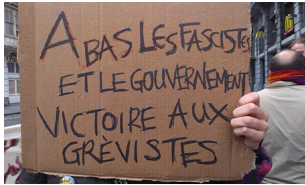 A BAS LES FASCISTES
ET LE GOUVERNEMENT
VICTOIRE AUX
GRÈVISTES